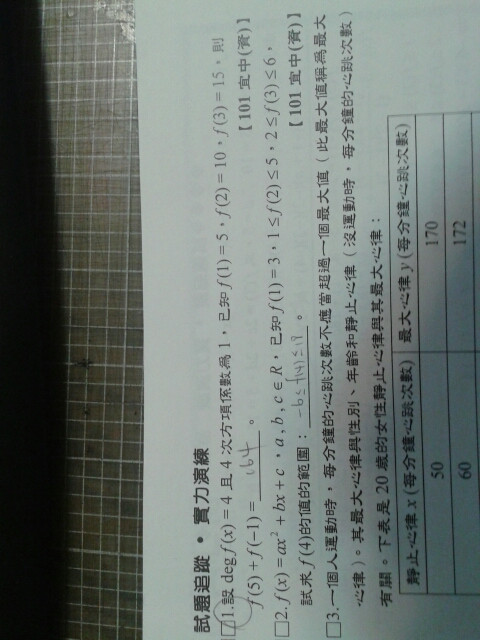 試題追蹤•實力演練
□1.設 deg f(x)=4 且 4 次方項係數為 1,已知 f(1)=5,f(2)=10,f(3)=15,則
f(5)+f(-1)= 164 。【101 宜中(資)】
□2.f(x)=ax²+bx+c,a,b,c∈R,已知 f(1)=3,1≤f(2)≤5,2≤f(3)≤6,
試求 f(4)的值的範圍: -6≤f(4)≤19 。【101 宜中(資)】
□3.一個人運動時,每分鐘的心跳次數不應當超過一個最大值(此最大值稱為最大
心律)。其最大心律與性別、年齡和靜止心律(沒運動時,每分鐘的心跳次數)
有關。下表是 20 歲的女性靜止心律與其最大心律:
靜止心律 x(每分鐘心跳次數) 最大心律 y(每分鐘心跳次數)
50 170
60 172